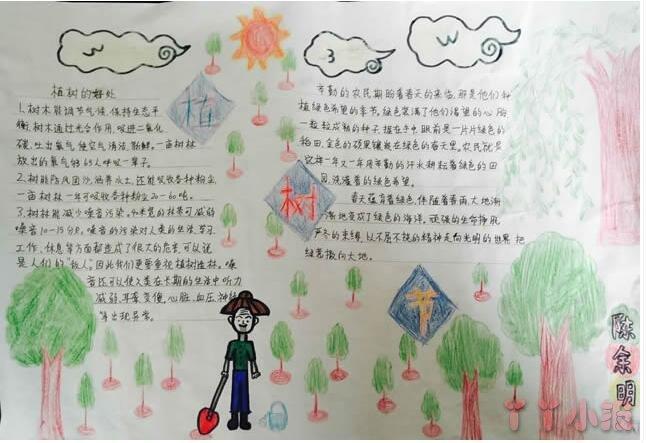 植树的好处
1.树木能调节气候,保持生态平
衡.树木通过光合作用,吸进二氧化
碳,吐出氧气,使空气清洁、新鲜。一亩树林
放出的氧气够65人呼吸一辈子。
2.树能防风固沙,涵养水土,还能吸收各种粉尘,
一亩树林一年可吸收各种粉尘20-60吨。
3.树林能减少噪音污染。40米宽的林带可减弱
噪音10-15分贝。噪音的污染对人类的生活、学习
工作、休息等方面都造成了很大的危害,可以说
是人们的"敌人"。因此我们更要重视植树造林。噪
音还可以使人类在长期的生活中听力
减弱,耳聋变傻,心脏、血压、神经
等出现异常。
植
树
节
辛勤的农民期盼着春天的来临,那是他们种
植绿色希望的季节。绿色装满了他们渴望的心胸
一粒粒成熟的种子握在手中,眼前是一片片绿色的
稻田,金色的硕果镶嵌在绿色的春天里。农民就是
这样一年又一年用辛勤的汗水耕耘着绿色的田
园,浇灌着的绿色希望。
春天蕴育着绿色,伴随着春雨大地渐
渐地变成了绿色的海洋。顽强的生命挣脱
严冬的束缚,以不屈不挠的精神走向光明的世界,把
绿意撒向大地。
陈余明
丫丫小孩